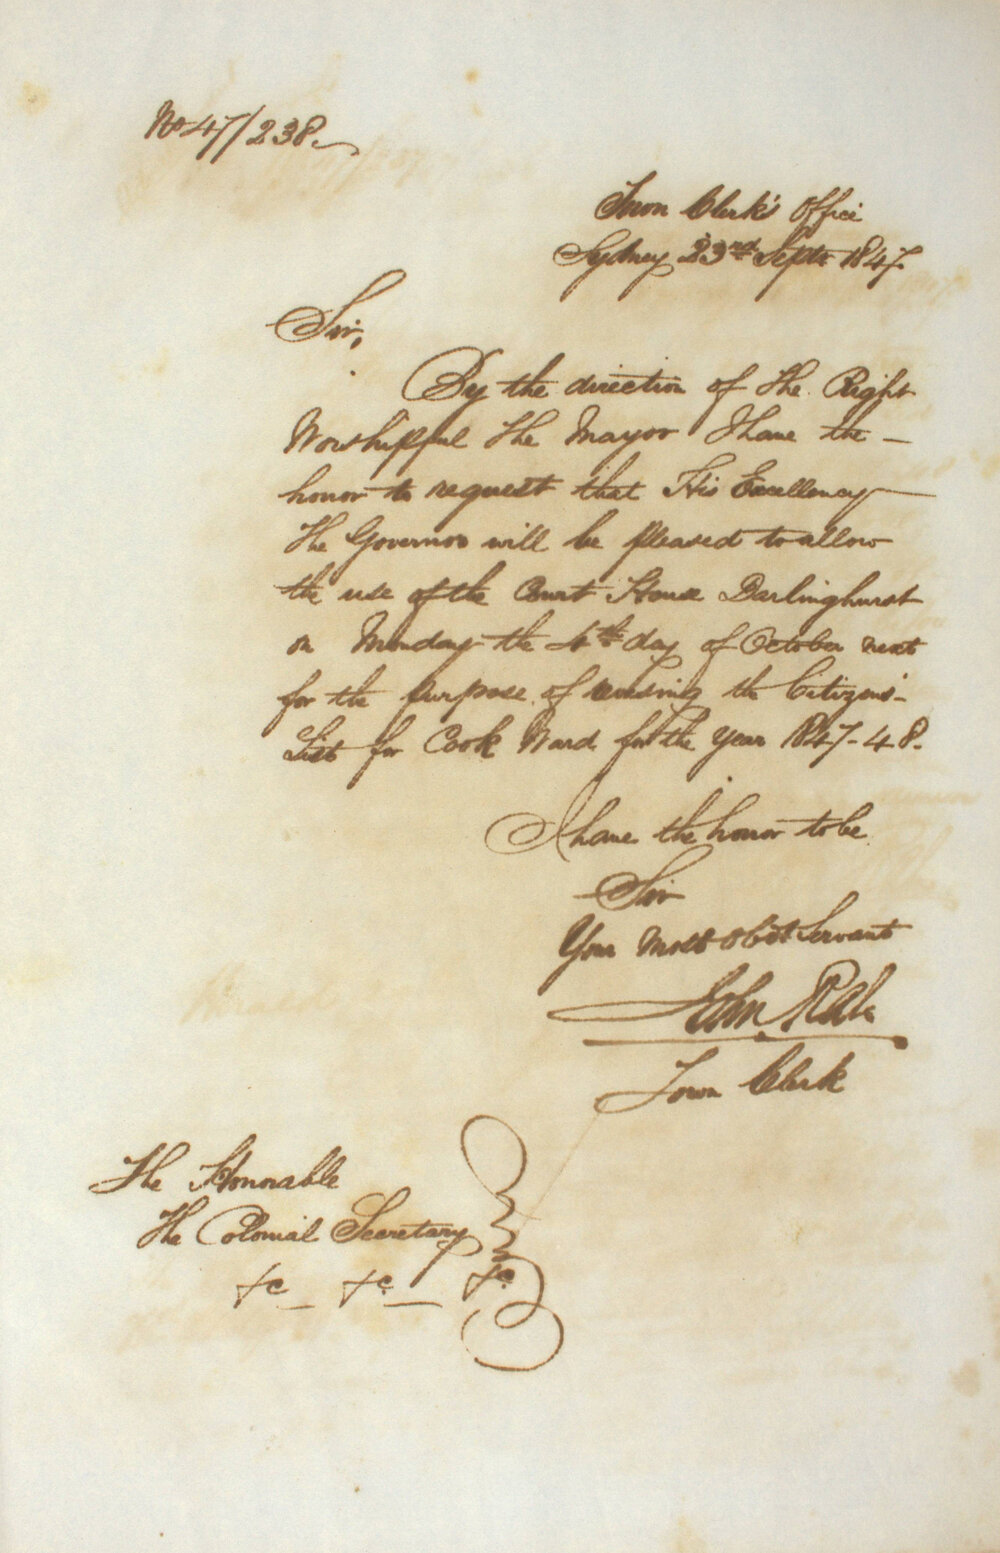 No 47/238.
Town Clerk's Office
Sydney 23rd Septr 1847.
Sir,
By the direction of The Right
Worshipful The Mayor I have the
honor to request that His Excellency
The Governor will be pleased to allow
the use of the Court House Darlinghurst
on Monday the 4th day of October next
for the purpose of revising the Citizens'
List for Cook Ward for the Year 1847-48.
I have the honor to be
Sir
Your Most Obdt Servant
John Rae
Town Clerk
The Honorable
The Colonial Secretary
&c &c &c